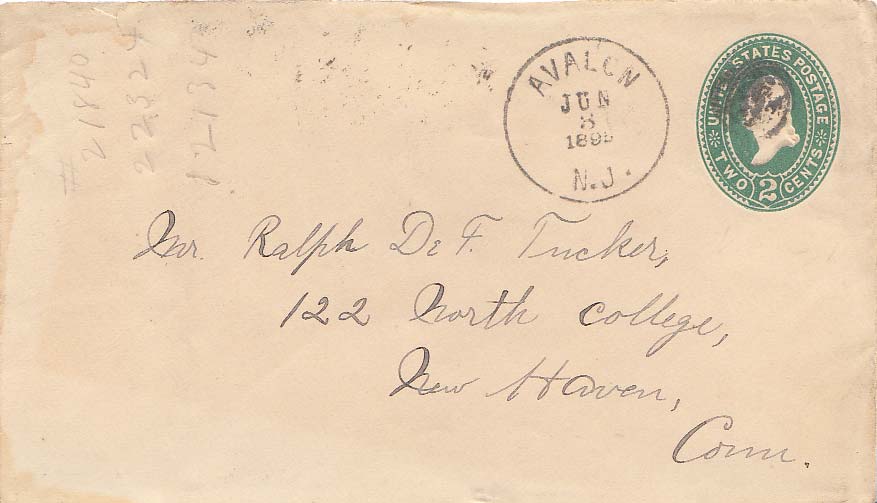 # 21840
22324
12134
AVALON
JUN
8
N.J.
UNITED STATES POSTAGE
TWO 2 CENTS
Mr. Ralph De F. Tucker,
122 North College,
New Haven,
Conn.